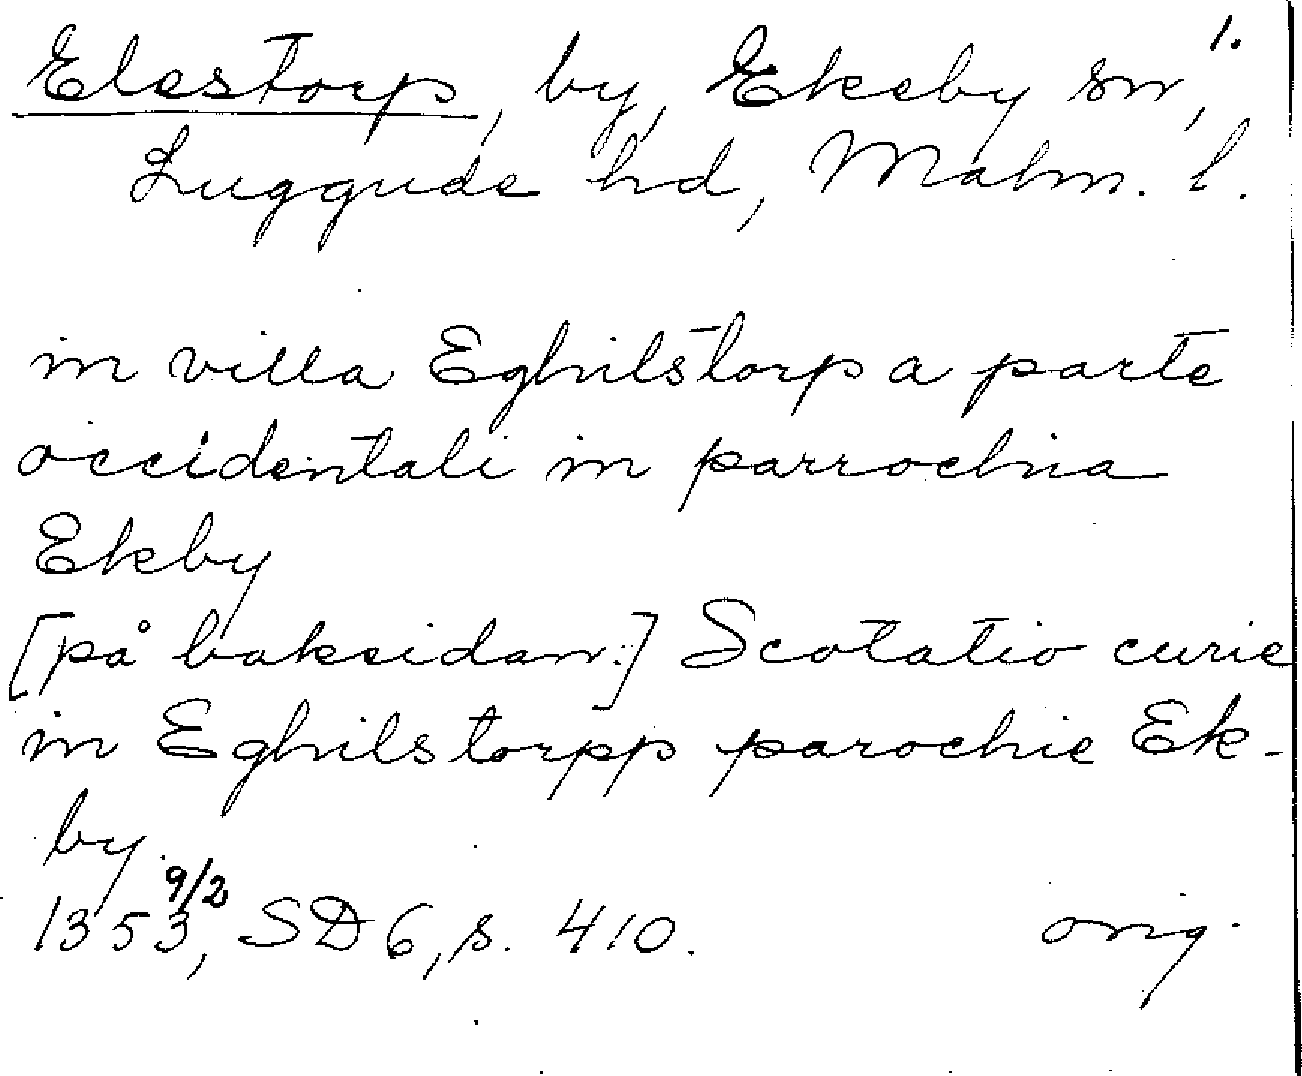 1.
Elestorp, by, Ekeby sn,
Luggude hd, Malm. l.
in villa Eghilstorp a parte
occidentali in parrochia
Ekby
[på baksidan:] Scotatio curie
in Eghilstorpp parochie Ek-
by.
1353 9/2, SD 6, s. 410. orig.